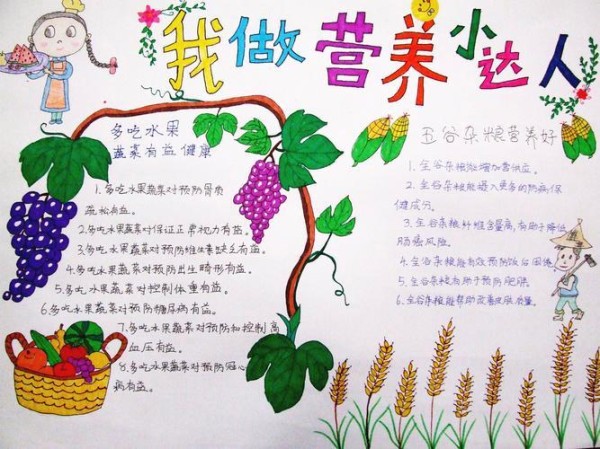 我做营养小达人
多吃水果
蔬菜有益健康
1.多吃水果蔬菜对预防骨质
疏松有益。
2.多吃水果蔬菜对保证正常视力有益。
3.多吃水果蔬菜对预防维生素缺乏有益。
4.多吃水果蔬菜对预防出生畸形有益。
5.多吃水果蔬菜对控制体重有益。
6.多吃水果蔬菜对预防糖尿病有益。
7.多吃水果蔬菜对预防和控制高
血压有益。
8.多吃水果蔬菜对预防冠心
病有益。
五谷杂粮营养好
1.五谷杂粮能增加营养。
2.五谷杂粮能摄入更多的防病保
健成分。
3.五谷杂粮纤维含量高,有助于降低
肠癌风险。
4.五谷杂粮能有效预防
5.五谷杂粮有助于预防肥胖。
6.五谷杂粮能帮助改善皮肤质量。